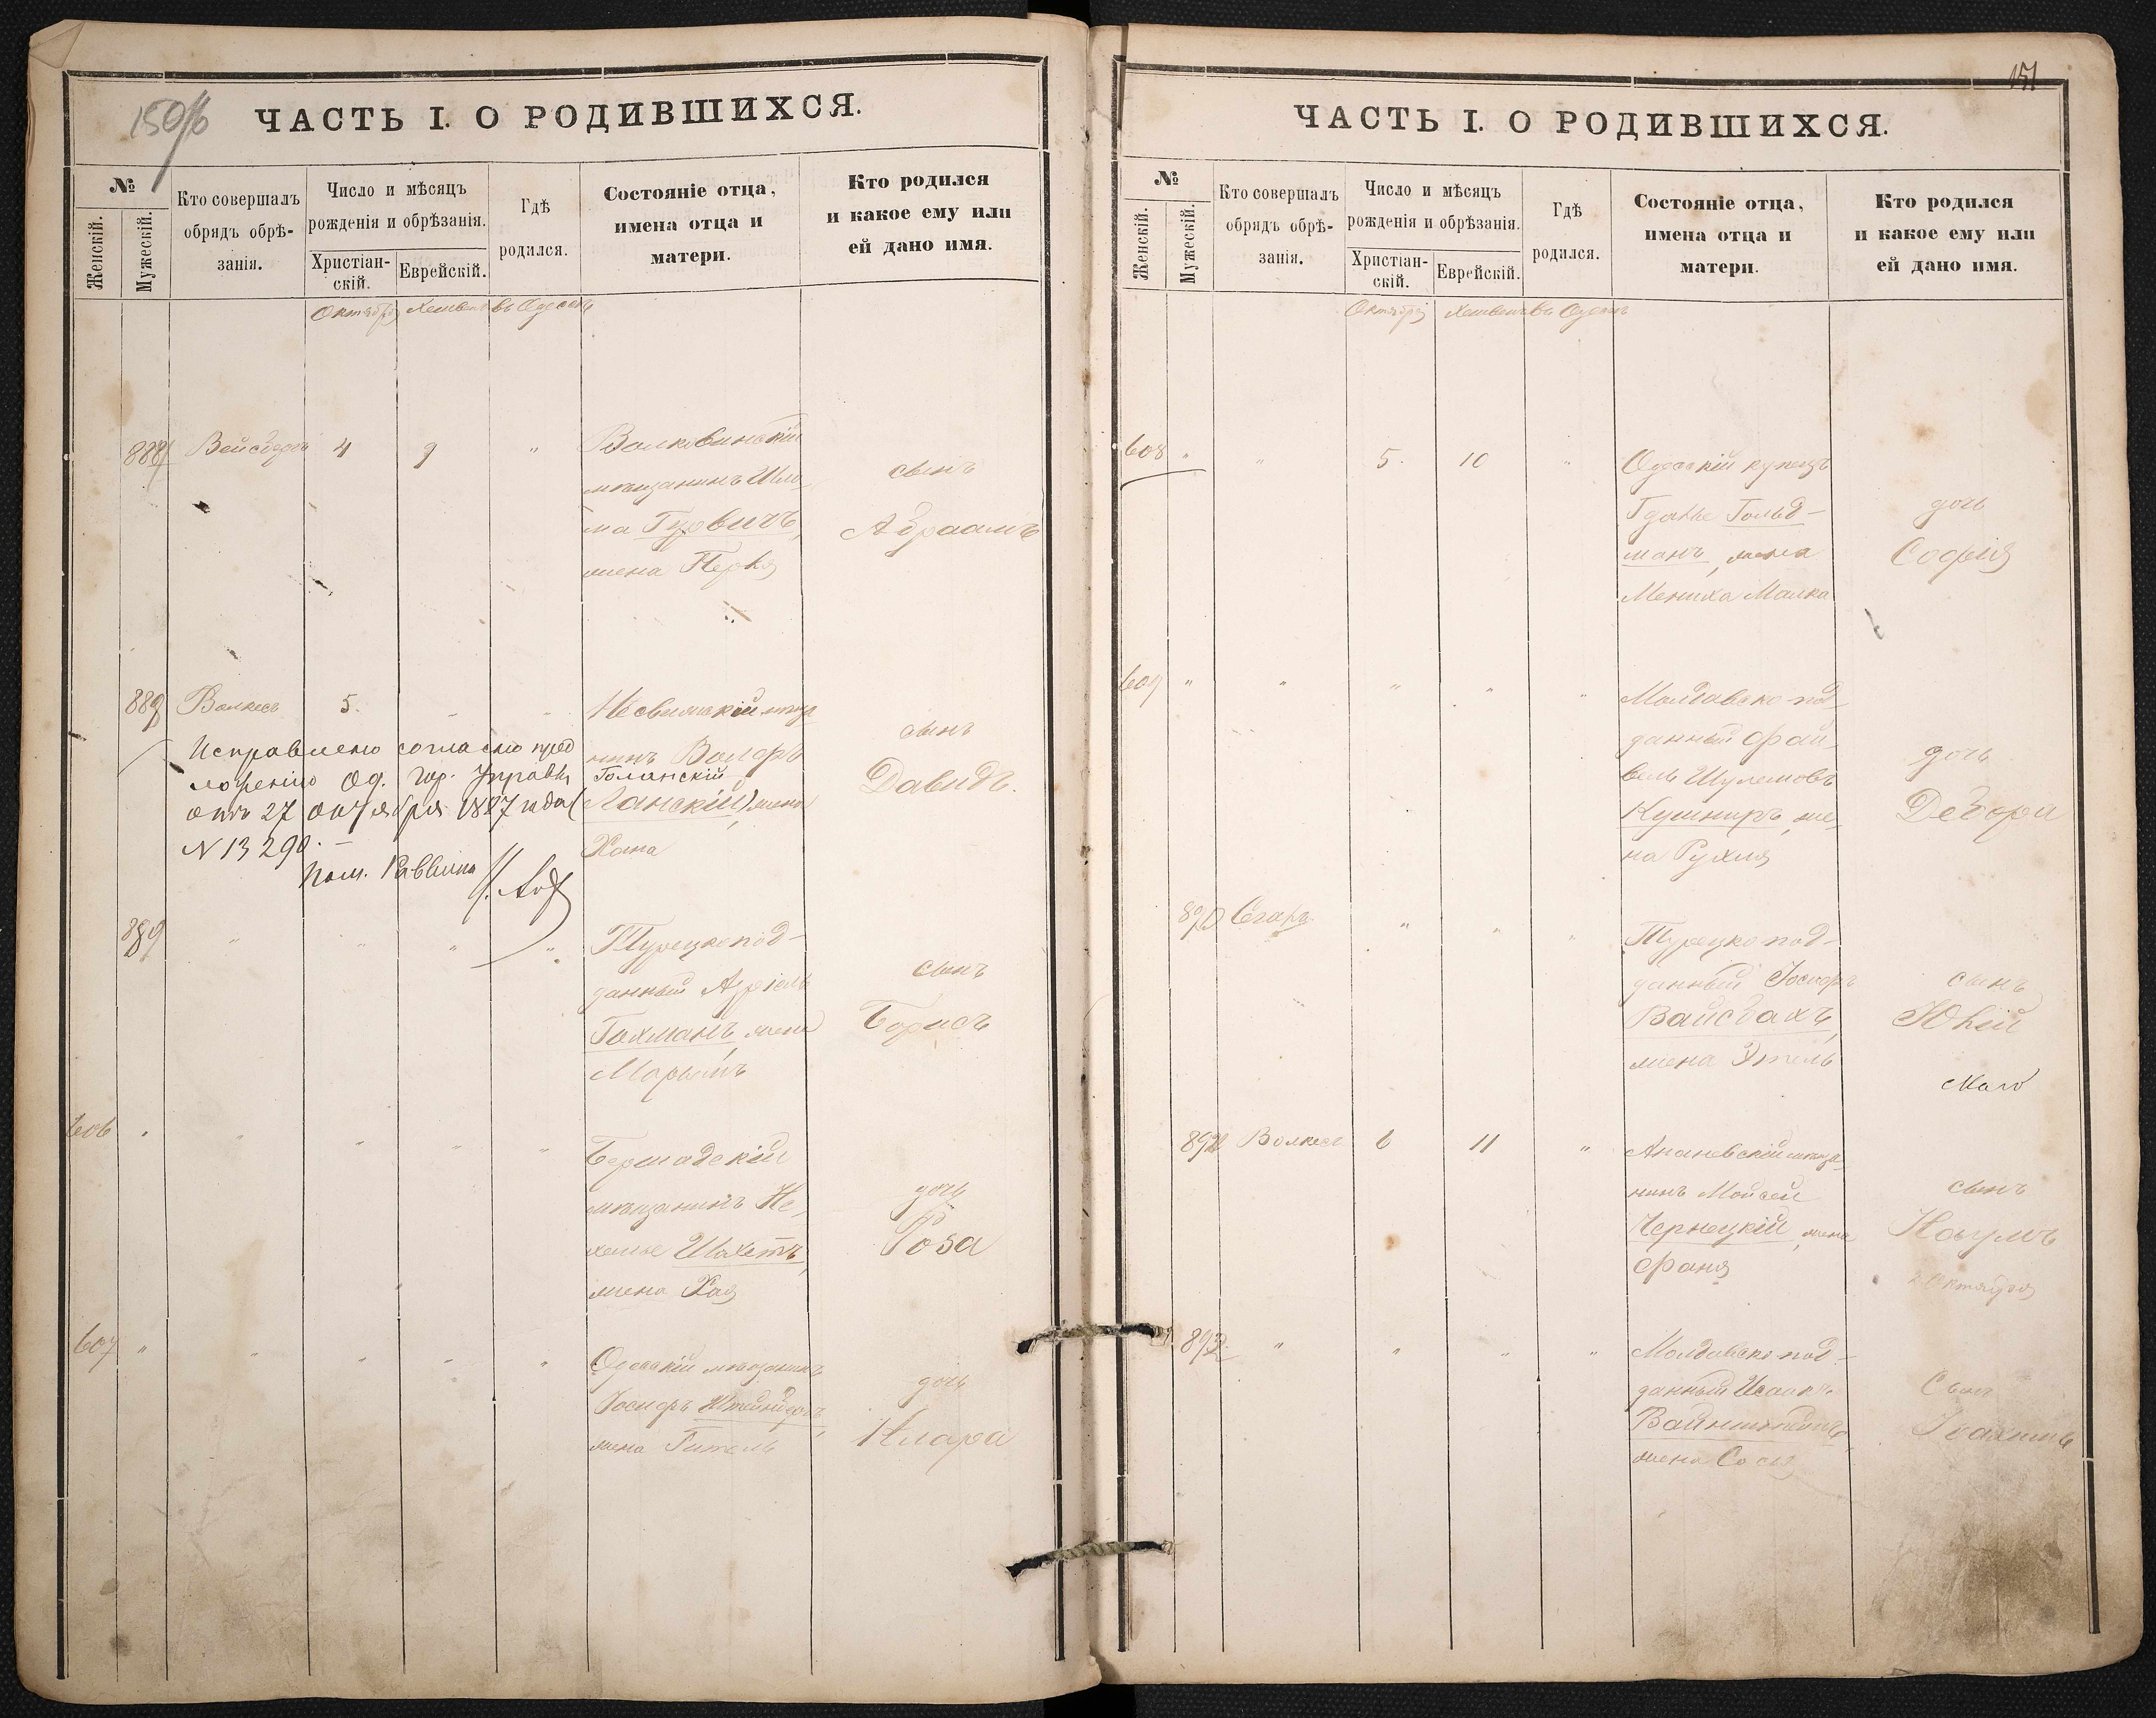 150/б
ЧАСТЬ I. О РОДИВШИХСЯ.
№
Женскій.
Мужескій.
Кто совершалъ
обрядъ обрѣ-
занія.
Число и мѣсяцъ
рожденія и обрѣзанія.
Христіан-
скій.
Еврейскій.
Гдѣ
родился.
Состояніе отца,
имена отца и
матери.
Кто родился
и какое ему или
ей дано имя.
Октября Хешвенъ въ Одессѣ
888 4 9 "
мѣщанинъ Шло-
ма Гуровичъ,
жена Перля
сынъ
Абраамъ
889 Волкесъ 5. " "
Несвижскій мѣща
нинъ Вольфъ
Голанскій
(Ланскій) жена
Хана
сынъ
Давидъ.
Исправлено согласно пред
ложенію Од. Гор. Управы
отъ 27 октября 1887 года
N 13290. –
Пом. Раввина
889 " " " "
Турецкопод-
данный Азріель
Гохманъ, жена
Марьямъ
сынъ
Борисъ
606 " " " " "
Бершадскій
мѣщанинъ Не-
хемье Шохетъ,
жена Хая
дочь
Роза
607 " " " " "
Одесскій мѣщанинъ
Іосифъ
жена Гитель
дочь
Клара
151
ЧАСТЬ I. О РОДИВШИХСЯ.
№
Женскій.
Мужескій.
Кто совершалъ
обрядъ обрѣ-
занія.
Число и мѣсяцъ
рожденія и обрѣзанія.
Христіан-
скій.
Еврейскій.
Гдѣ
родился.
Состояніе отца,
имена отца и
матери.
Кто родился
и какое ему или
ей дано имя.
Октября Хешвенъ въ Одессѣ
608 " " 5. 10 "
Одесскій купецъ
Гдалье Гольд-
манъ, жена
Мениха Малка
дочь
Софія
609 " " " " "
Молдавско-под-
данный Фай-
вель Шулемовъ
Кушниръ, же-
на Рухля
дочь
Дебора
890 " " "
Турецко под-
данный Іосифъ
Вайсбахъ,
жена Этель
сынъ
Юлій
892 Волкесъ 6 11 "
Ананевскій мѣща-
нинъ Мойсей
Чернецкій, жена
Фаня
сынъ
Наумъ
октября
893 " " " "
Молдавско под-
данный Исаакъ
жена Сося
Сынъ
Іоахимъ